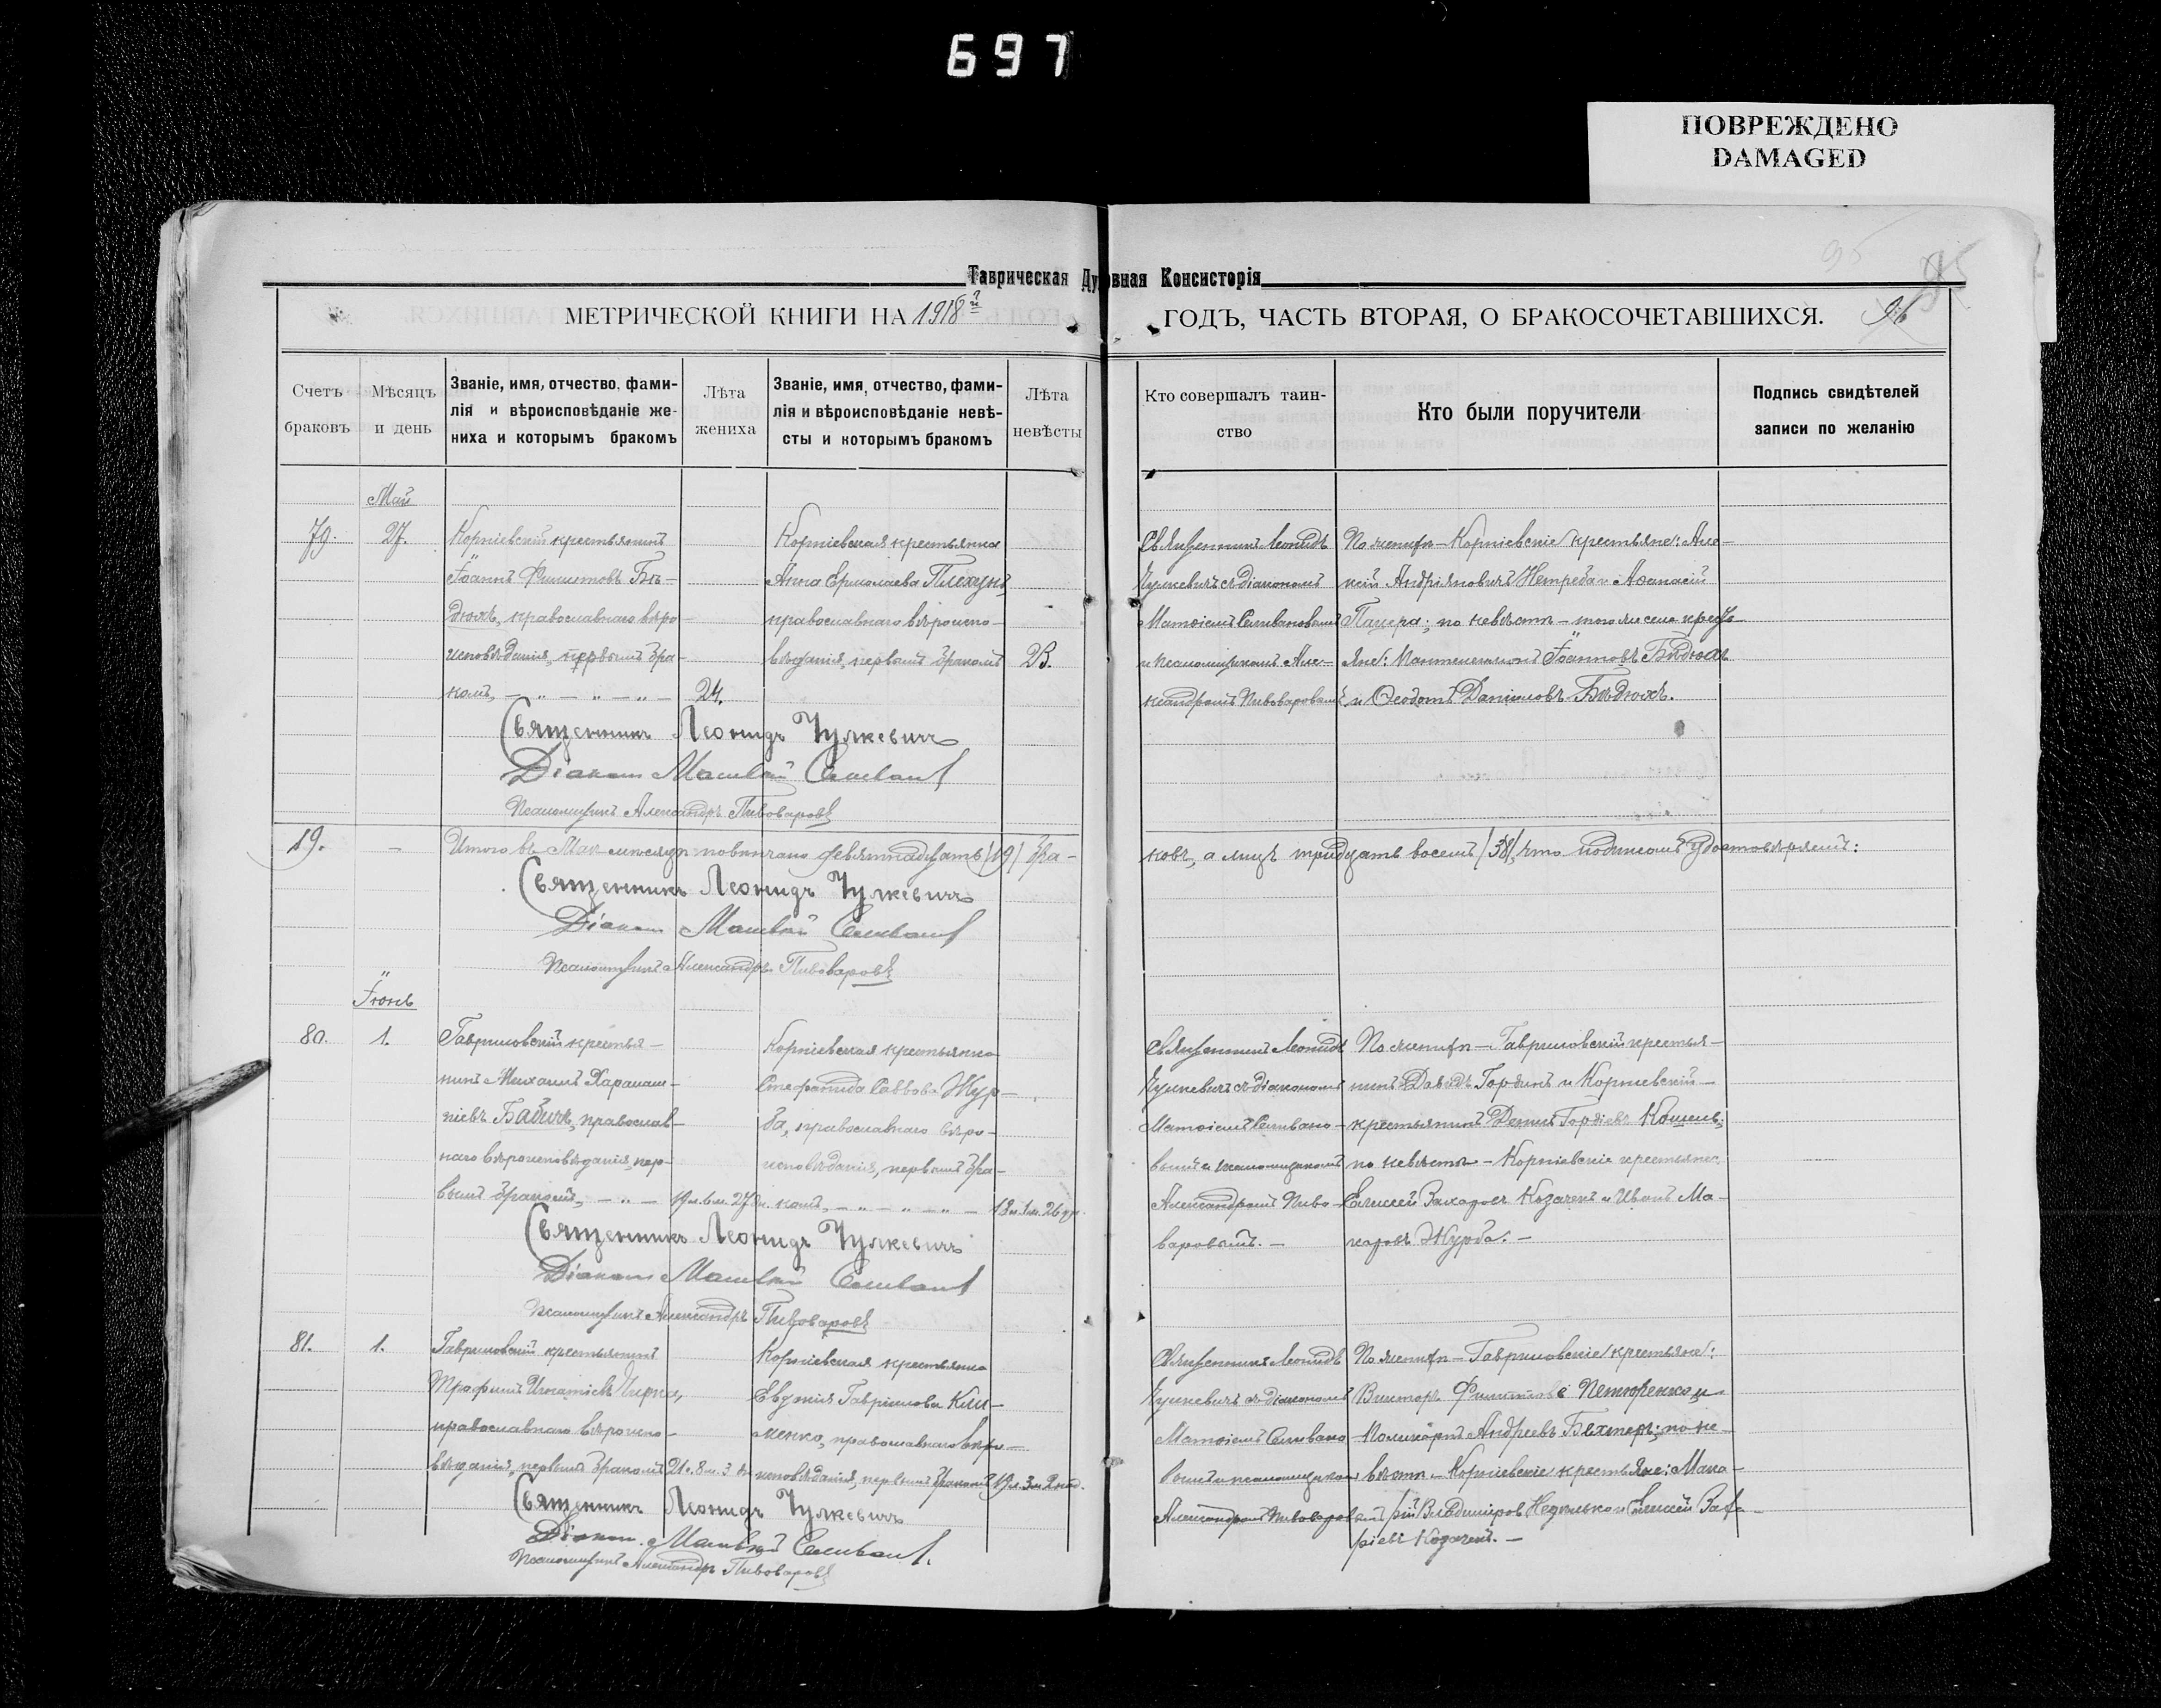 697
ПОВРЕЖДЕНО
DAMAGED
Таврическая Духовная Консисторія
МЕТРИЧЕСКОЙ КНИГИ НА 1918 й ГОДЪ, ЧАСТЬ ВТОРАЯ, О БРАКОСОЧЕТАВШИХСЯ.
95
96
Счетъ браковъ
Мѣсяцъ и день
Званіе, имя, отчество, фами-
лія и вѣроисповѣданіе же-
ниха и которымъ бракомъ
Лѣта жениха
Званіе, имя, отчество, фами-
лія и вѣроисповѣданіе невѣ-
сты и которымъ бракомъ
Лѣта невѣсты
Кто совершалъ таин-
ство
Кто были поручители
Подпись свидѣтелей
записи по желанію
Май
79.
27.
Корніевскій крестьянинъ
Іоаннъ Филиповъ Бѣ-
дюхъ, православнаго вѣро-
исповѣданія, первымъ бра-
комъ, — „ — „ — „ —
24.
Корніевская крестьянка
Анна Ермолаева Плехунъ,
православнаго вѣроиспо-
вѣданія, первымъ бракомъ
23.
Священникъ Леонидъ
Чулкевичъ съ діакономъ
Матѳіемъ Селивановымъ
и псаломщикомъ Але-
ксандромъ Пивоваровымъ
По женихѣ — Корніевскіе крестьяне: Але-
ксій Андріяновичъ Нетреба и Аѳанасій
Пацера; по невѣстѣ — того же села кресть-
яне: Пантелеимонъ Іоанновъ Бѣдюхъ
и Ѳеодотъ Даніиловъ Бѣдюхъ.
Священникъ Леонидъ Чулкевичъ
Діаконъ Матѳій Селивановъ
Псаломщикъ Александръ Пивоваровъ
19. —
Итого въ Маѣ мѣсяцѣ повѣнчано девятнадцать /19/ бра-
ковъ, а лицъ тридцать восемь /38/, что подписомъ удостовѣряемъ:
Священникъ Леонидъ Чулкевичъ
Діаконъ Матѳій Селивановъ
Псаломщикъ Александръ Пивоваровъ
Іюнь
80.
1.
Гавриловскій крестья-
нинъ Михаилъ Харалам-
піевъ Бабичъ, православ-
наго вѣроисповѣданія, пер-
вымъ бракомъ, — „ —
19 л. 6 м. 27 дн.
Корніевская крестьянка
Стефанида Саввова Жур-
ба, православнаго вѣро-
исповѣданія, первымъ бра-
комъ, — „ — „ — „ —
18 л. 1 м. 26 дн.
Священникъ Леонидъ
Чулкевичъ съ діакономъ
Матѳіемъ Селивано-
вымъ и псаломщикомъ
Александромъ Пиво-
варовымъ. —
По женихѣ — Гавриловскій крестья-
нинъ Давидъ Гординъ и Корніевскій
крестьянинъ Демидъ Гордіевъ Кошель;
по невѣстѣ — Корніевскіе крестьяне
Елисей Захаровъ Козаченъ и Иванъ Ма-
каровъ Журба. —
Священникъ Леонидъ Чулкевичъ
Діаконъ Матѳій Селивановъ
Псаломщикъ Александръ Пивоваровъ
81.
1.
Гавриловскій крестьянинъ
Трофимъ Игнатіевъ Чирка,
православнаго вѣроиспо-
вѣданія, первымъ бракомъ
21 л. 8 м. 3 дн.
Корніевская крестьянка
Евдокія Гавріилова Кли-
менко, православнаго вѣро-
исповѣданія, первымъ бракомъ
19 л. 3 м.
Священникъ Леонидъ
Чулкевичъ съ діакономъ
Матѳіемъ Селивано-
вымъ и псаломщикомъ
Александромъ Пивоваровымъ
По женихѣ — Гавриловскіе крестьяне:
Викторъ Филиповъ Петюренко и
Поликарпъ Андреевъ Бехтеръ; по не-
вѣстѣ — Корніевскіе крестьяне: Мака-
рій Владиміровъ и Елисей Заха-
ріевъ Козаченъ. —
Священникъ Леонидъ Чулкевичъ
Діаконъ Матѳій Селивановъ.
Псаломщикъ Александръ Пивоваровъ